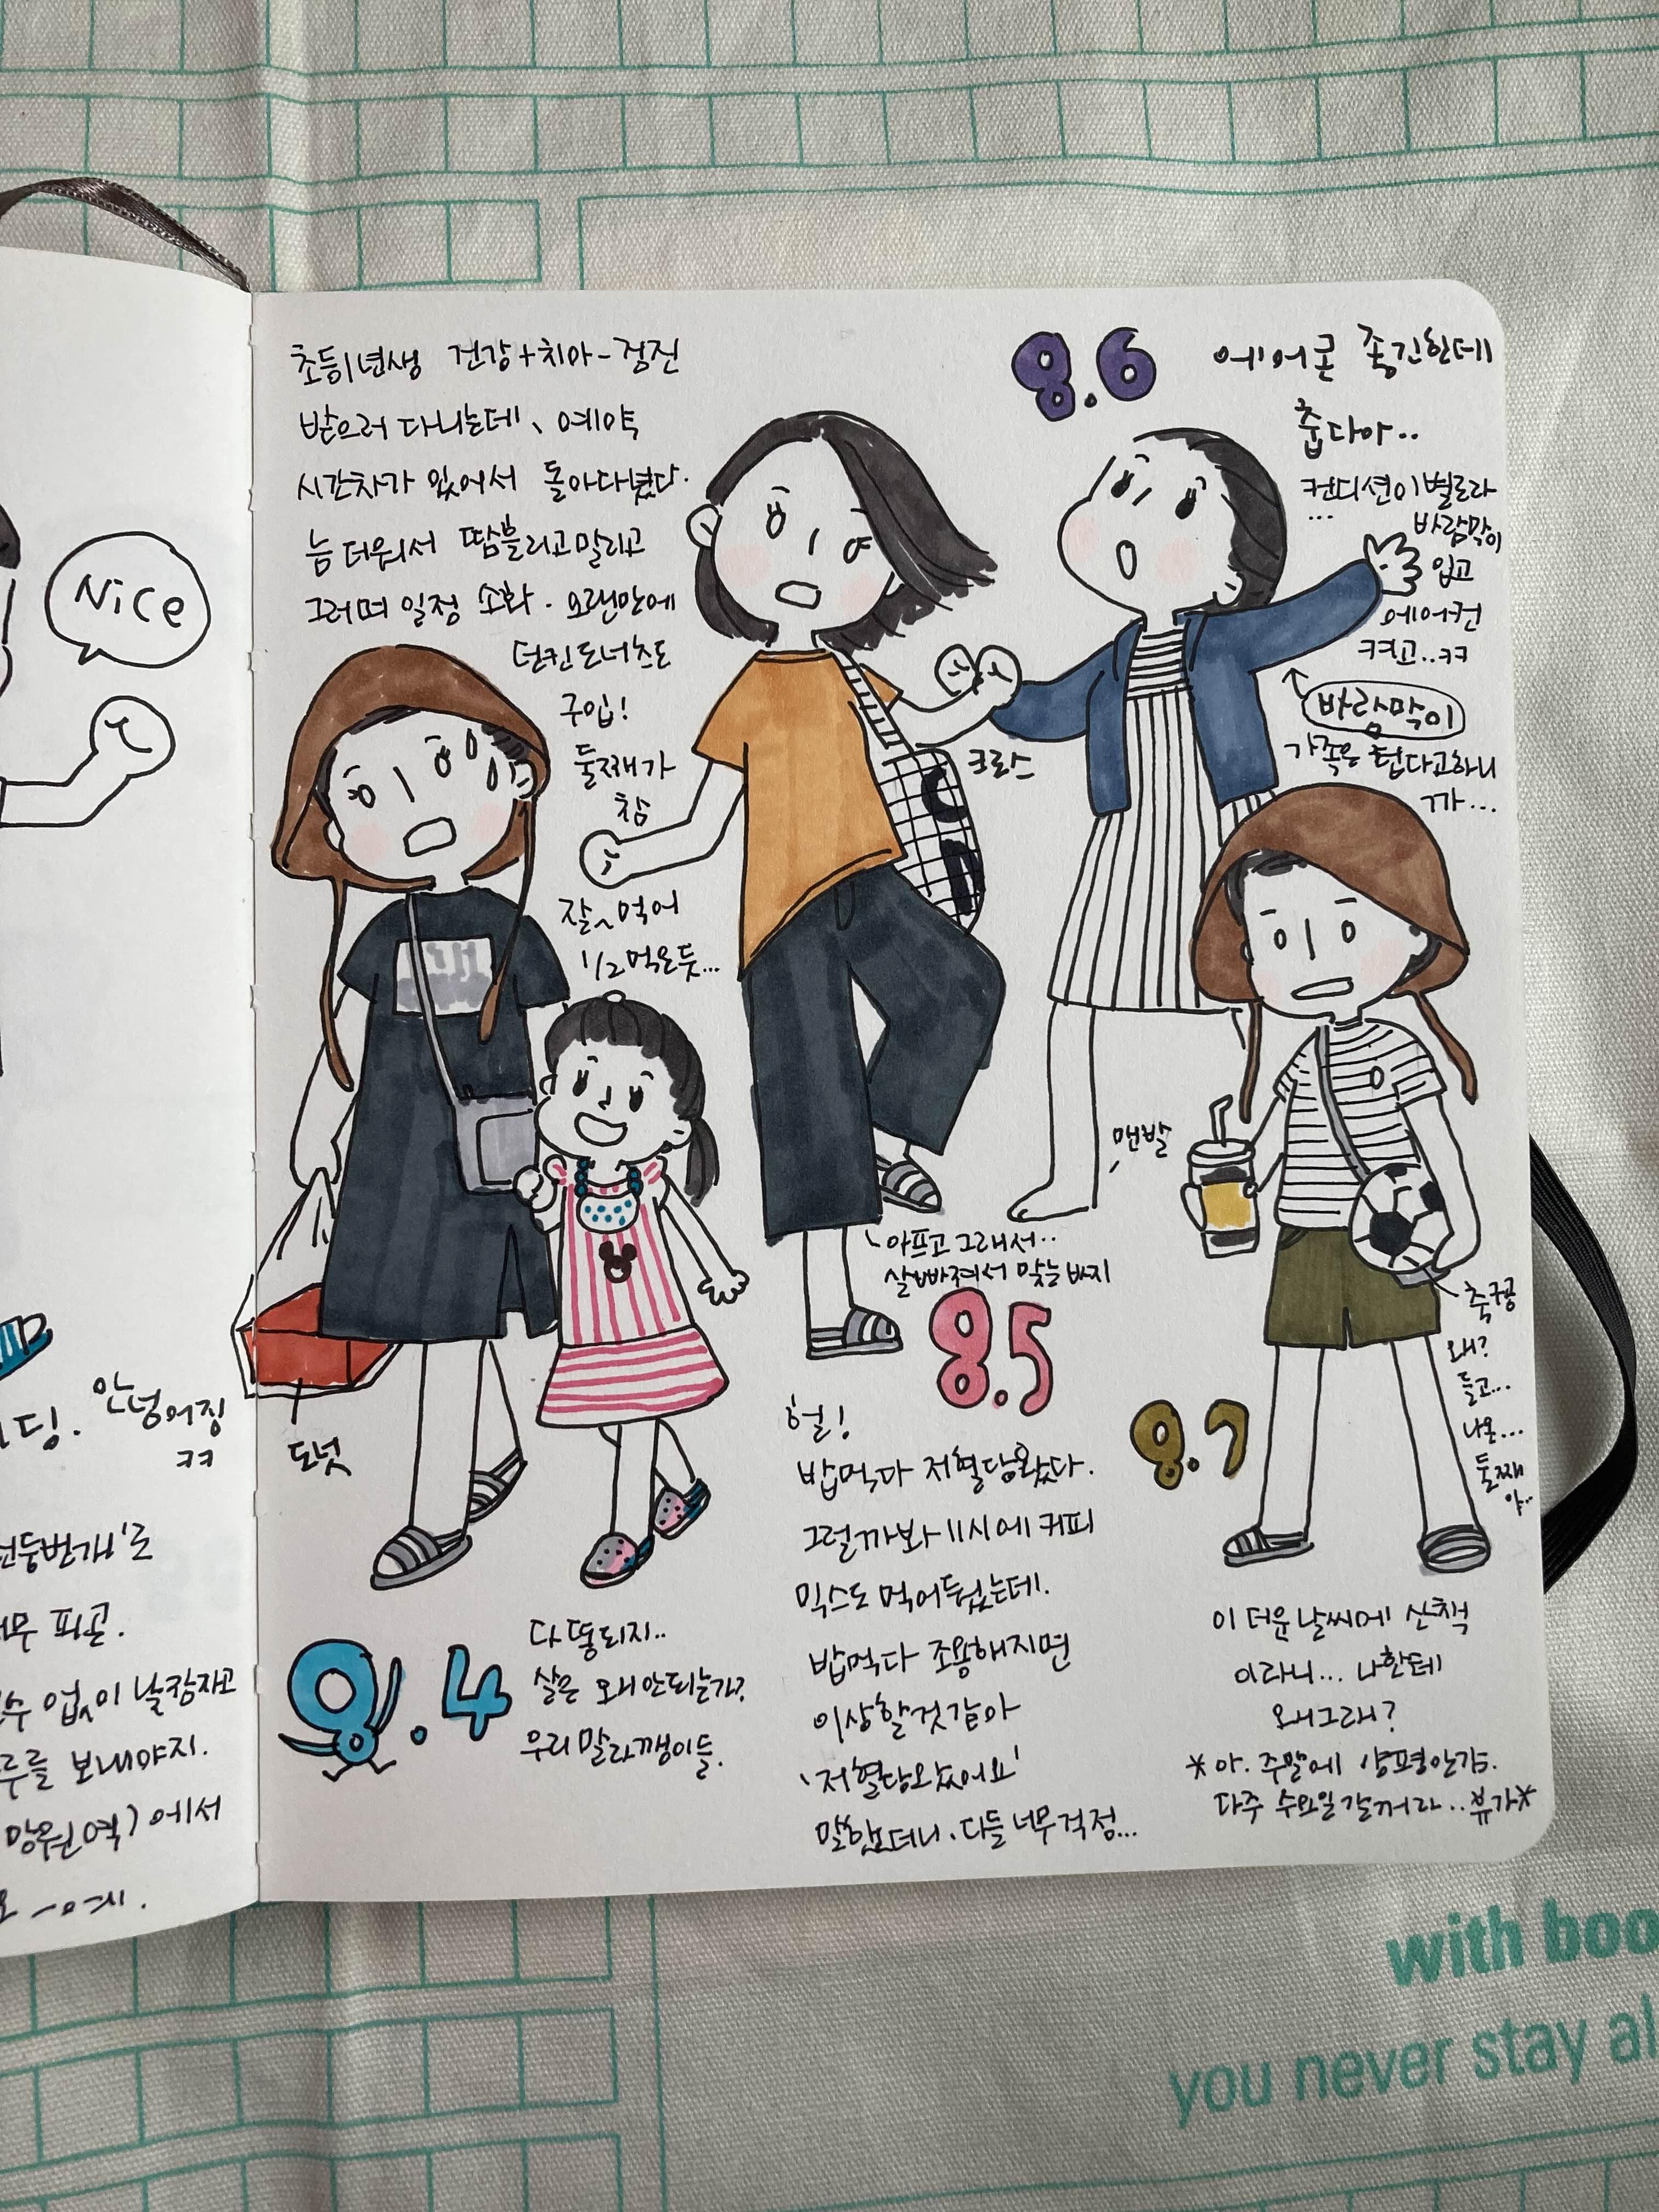 Nice
안녕어징
ㅋㅋ
딩.
천둥번개'로
피곤.
수 없이 낮잠자고
루를 보내야지.
망원역) 에서
초등1년생 건강+치아-검진
받으러 다니는데、예약
시간차가 있어서 돌아다녔다.
늠 더워서 땀흘리고말리고
그러며 일정 소화. 오랜만에
던킨도너츠도
구입!
둘째가
참
잘~먹어
1/2먹은듯...
도넛
8.4
다 똥되지..
살은 왜안되는가?
우리 말라깽이들.
크로스
아프고 그래서..
살빠져서 맞는 바지
8.5
헐!
밥먹다 저혈당왔다.
그럴까봐 11시에 커피
믹스도 먹어뒀는데.
밥먹다 조용해지면
이상할것같아
'저혈당왔어요'
말했더니. 다들 너무걱정...
8.6
에어콘 좋긴한데
춥다아..
컨디션이별로라
...
바람막이
입고
에어컨
켜고..ㅋㅋ
바람막이
가족은 덥다고하니
까...
맨발
8.7
축구공
왜?
들고...
나온...
둘째
야..
이 더운날씨에 산책
이라니... 나한테
왜그래?
*아. 주말에 양평안감.
다주 수요일갈꺼라..휴가*
with boo
you never stay al